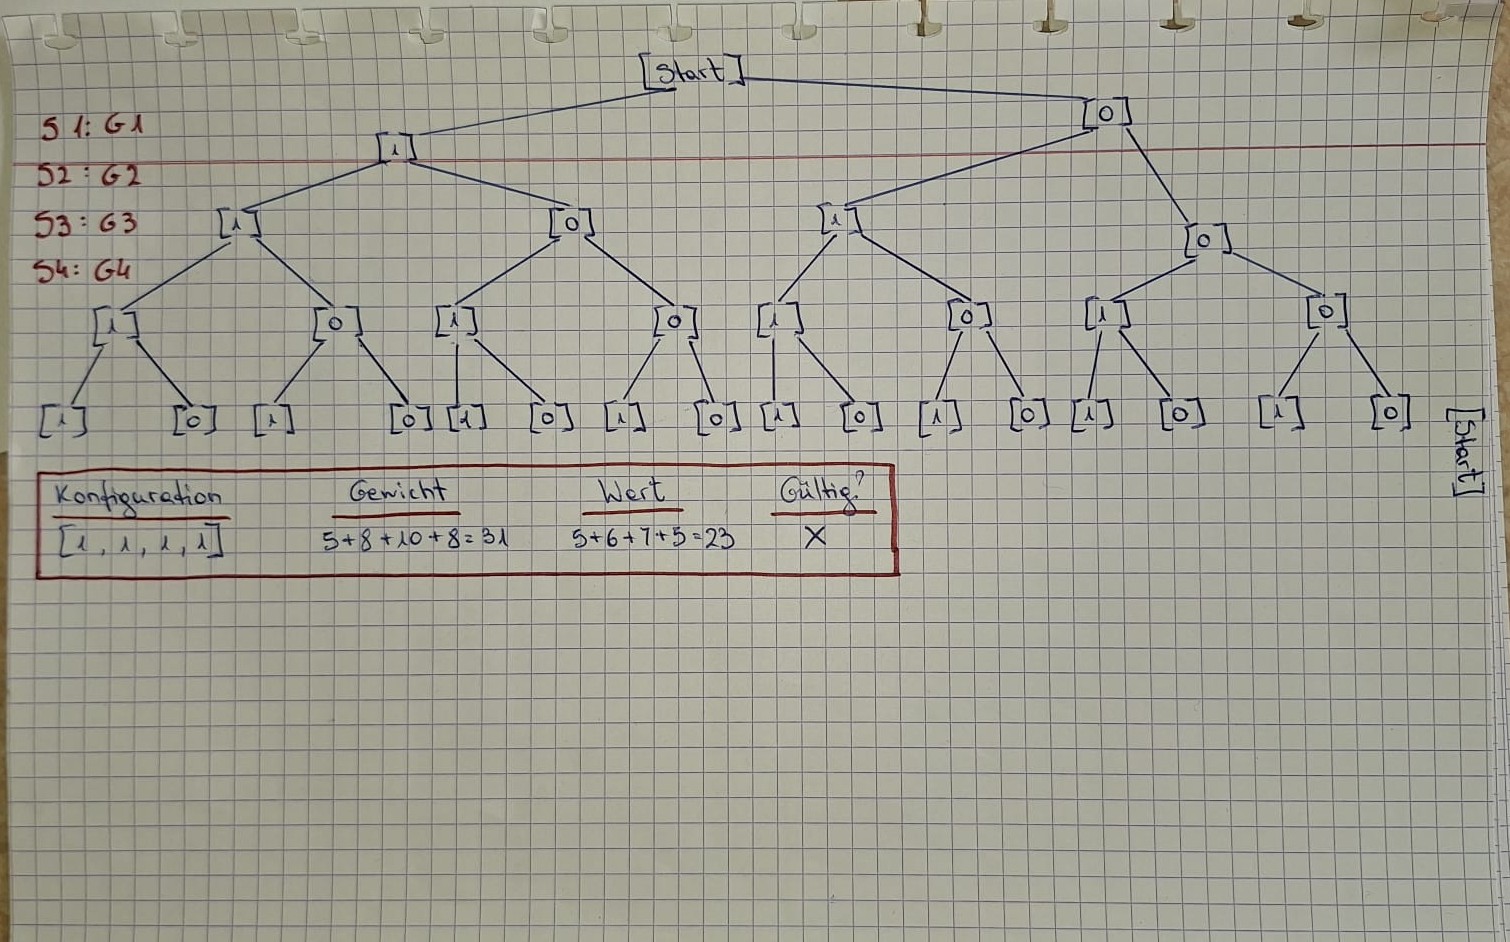 [Start]
[0]
S1: G1
[1]
S2: G2
[1] [0] [1]
S3: G3
[0]
S4: G4
[1] [0] [1] [0] [1] [0] [1] [0]
[1] [0] [1] [0] [1] [0] [1] [0] [1] [0] [1] [0] [1] [0] [1] [0]
[Start]
Konfiguration Gewicht Wert Gültig?
[1, 1, 1, 1] 5+8+10+8=31 5+6+7+5=23 X